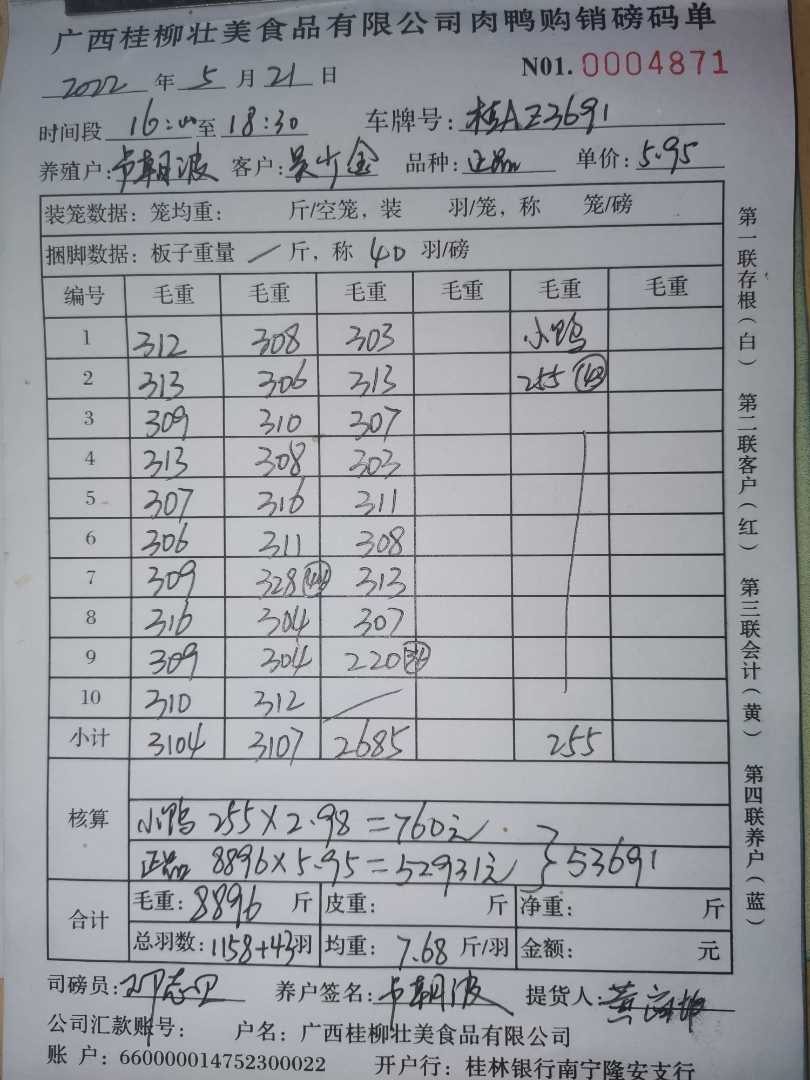 广西桂柳壮美食品有限公司肉鸭购销磅码单
2022 年 5 月 21 日 N01. 0004871
时间段 16:00 至 18:30 车牌号: 桂AZ3691
养殖户: 卢朝波 客户: 吴少金 品种: 正品 单价: 5.95
装笼数据: 笼均重: 斤/空笼, 装 羽/笼, 称 笼/磅
捆脚数据: 板子重量 / 斤, 称 40 羽/磅
编号 毛重 毛重 毛重 毛重 毛重 毛重
1 312 308 303 小鸭
2 313 306 313 255 (43)
3 309 310 307
4 313 308 303
5 307 316 311
6 306 311 308
7 309 328 313
8 316 304 307
9 309 304 220
10 310 312 /
小计 3104 3107 2685 255
核算
小鸭 255×2.98=760元
正品 8896×5.95=52931元 } 53691
合计
毛重: 8896 斤 皮重: 斤 净重: 斤
总羽数: 1158+43羽 均重: 7.68 斤/羽 金额: 元
司磅员: 养户签名: 卢朝波 提货人:
公司汇款账号: 户名: 广西桂柳壮美食品有限公司
账 户: 660000014752300022 开户行: 桂林银行南宁隆安支行
第一联存根(白) 第二联客户(红) 第三联会计(黄) 第四联养户(蓝)